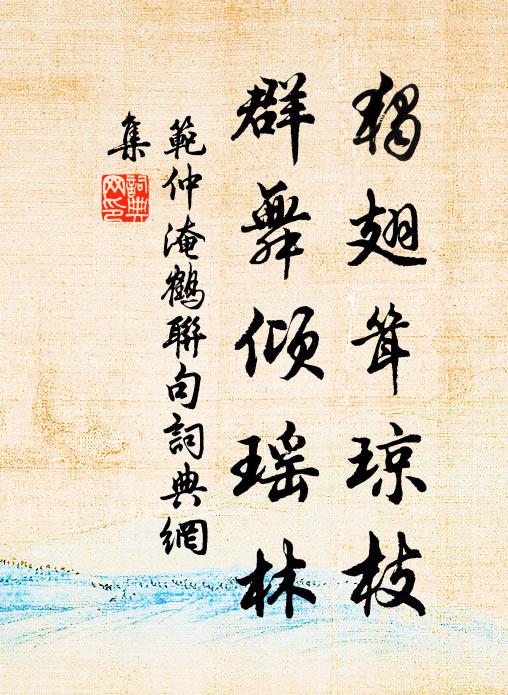 獨翅耸瓊枝
群舞倾瑶林
範仲淹鶴聯句詞典網
集
詞典
网印